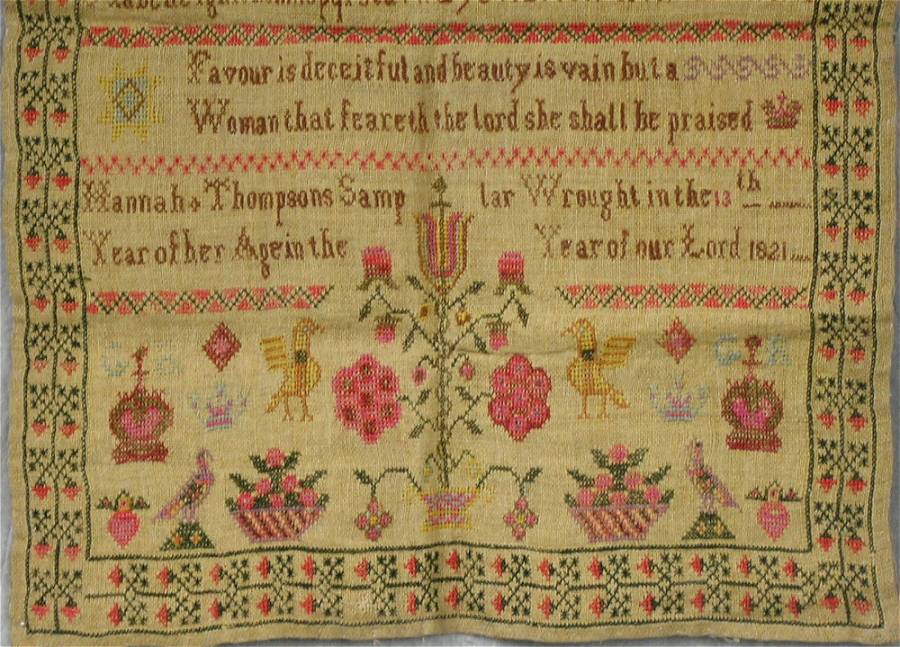 Favour is deceitful and beauty is vain but a
Woman that feareth the lord she shall be praised
Hannah Thompsons Samp lar Wrought in the 13th
Year of her Age in the Year of our Lord 1821
G R G R